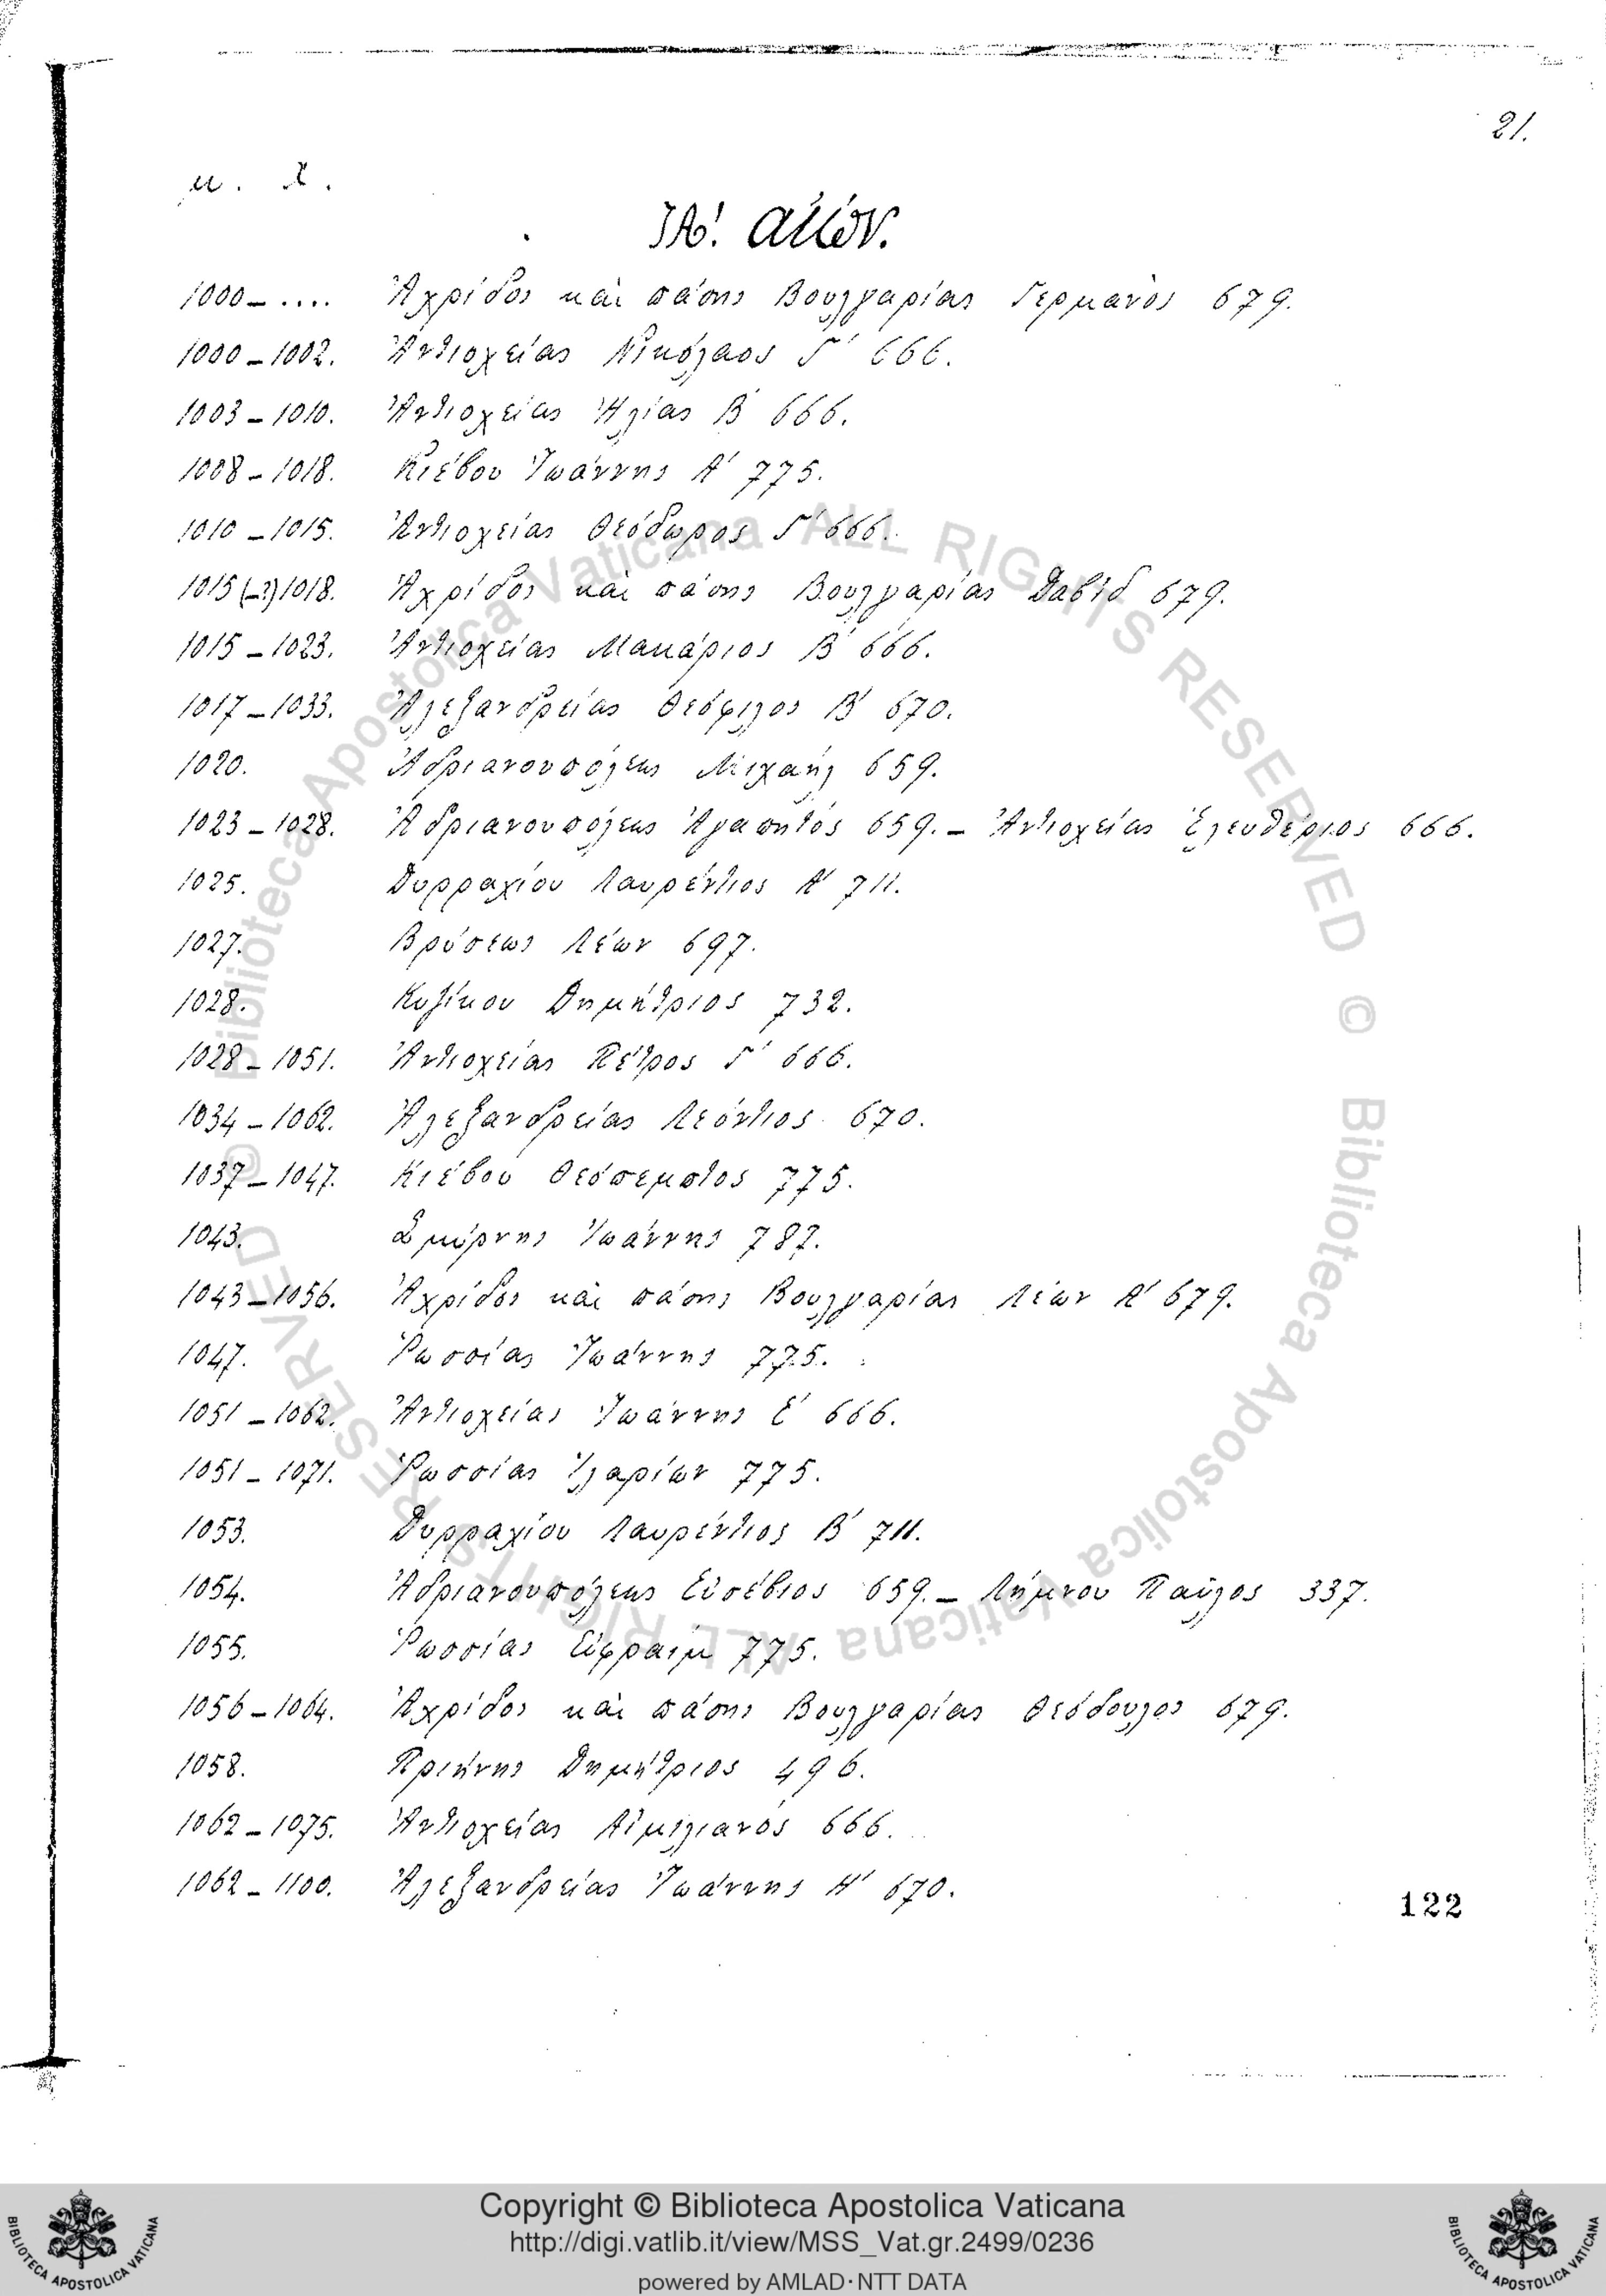 21.
μ. Χ.
ΙΑ΄. αἰών.
1000 – .... Ἀχρίδος καὶ πάσης Βουλγαρίας Γερμανὸς 679.
1000 – 1002. Ἀντιοχείας Νικόλαος Γ΄ 666.
1003 – 1010. Ἀντιοχείας Ἠλίας Β΄ 666.
1008 – 1018. Κιέβου Ἰωάννης Α΄ 775.
1010 – 1015. Ἀντιοχείας Θεόδωρος Γ΄ 666.
1015 (–?) 1018. Ἀχρίδος καὶ πάσης Βουλγαρίας Δαβὶδ 679.
1015 – 1023. Ἀντιοχείας Μακάριος Β΄ 666.
1017 – 1033. Ἀλεξανδρείας Θεόφιλος Β΄ 670.
1020. Ἀδριανουπόλεως Μιχαὴλ 659.
1023 – 1028. Ἀδριανουπόλεως Ἀγαπητός 659. – Ἀντιοχείας Ἐλευθέριος 666.
1025. Δυρραχίου Λαυρέντιος Α΄ 711.
1027. Βρύσεως Λέων 697.
1028. Κυζίκου Δημήτριος 732.
1028 – 1051. Ἀντιοχείας Πέτρος Γ΄ 666.
1034 – 1062. Ἀλεξανδρείας Λεόντιος 670.
1037 – 1047. Κιέβου Θεόπεμπτος 775.
1043. Σμύρνης Ἰωάννης 787.
1043 – 1056. Ἀχρίδος καὶ πάσης Βουλγαρίας Λέων Α΄ 679.
1047. Ῥωσσίας Ἰωάννης 775.
1051 – 1062. Ἀντιοχείας Ἰωάννης Ε΄ 666.
1051 – 1071. Ῥωσσίας Ἱλαρίων 775.
1053. Δυρραχίου Λαυρέντιος Β΄ 711.
1054. Ἀδριανουπόλεως Εὐσέβιος 659. – Λήμνου Παῦλος 337.
1055. Ῥωσσίας Εὐφραὶμ 775.
1056 – 1064. Ἀχρίδος καὶ πάσης Βουλγαρίας Θεόδουλος 679.
1058. Πριήνης Δημήτριος 496.
1062 – 1075. Ἀντιοχείας Αἰμιλιανός 666.
1062 – 1100. Ἀλεξανδρείας Ἰωάννης Η΄ 670.
122
© Biblioteca Apostolica Vaticana ALL RIGHTS RESERVED © Biblioteca Apostolica Vaticana ALL RIGHTS RESERVED
Copyright © Biblioteca Apostolica Vaticana
http://digi.vatlib.it/view/MSS_Vat.gr.2499/0236
powered by AMLAD·NTT DATA
BIBLIOTECA APOSTOLICA VATICANA
BIBLIOTECA APOSTOLICA VATICANA